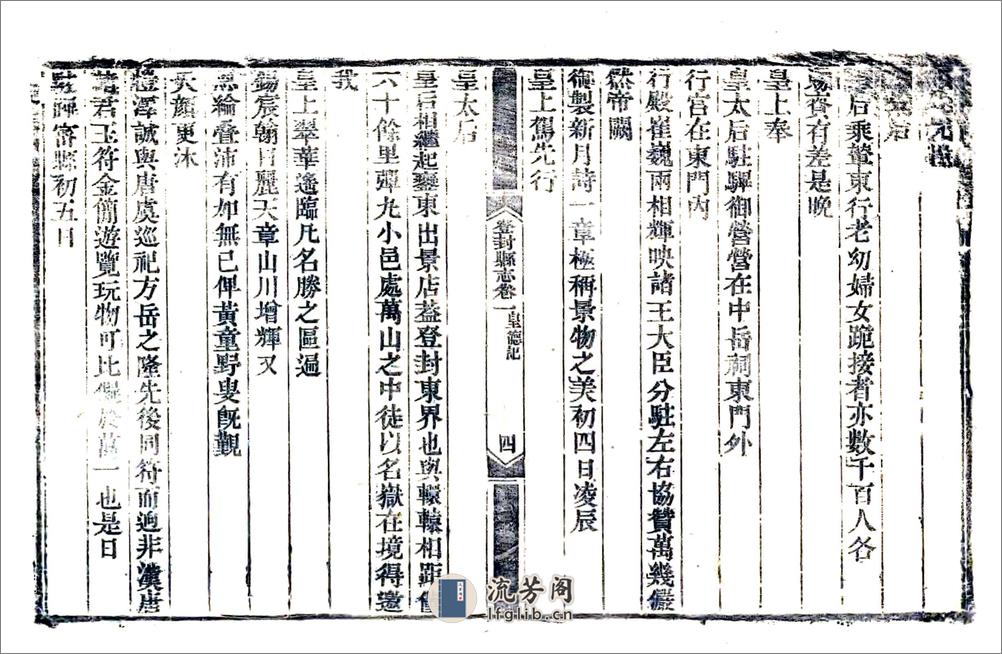 后
后乘輦東行老幼婦女跪接者亦數千百人各
賜賚有差是晚
皇上奉
皇太后駐驛御營營在中岳祠東門外
行宮在東門內
行殿崔巍兩相輝映諸王大臣分駐左右協贊萬幾儼
然帝闕
御製新月詩一章極稱景物之美初四日凌辰
皇上駕先行
登封縣志卷一 皇德記
四
皇太后
皇后相繼起鑾東出景店蓋登封東界也與轘轅相距
六十餘里彈九小邑處萬山之中徒以名嶽在境得邀
我
皇上翠華遙臨凡名勝之區遍
錫宸翰日麗天章山川增輝又
恩綸疊沛有加無已俾黃童野叟既觀
天顏更沐
澤誠與唐虞巡祀方岳之隆先後同符而逈非漢唐
諸君玉符金簡遊覽玩物可比擬於萬一也是日
駐蹕密縣初五日
流芳阁
lfglib.cn